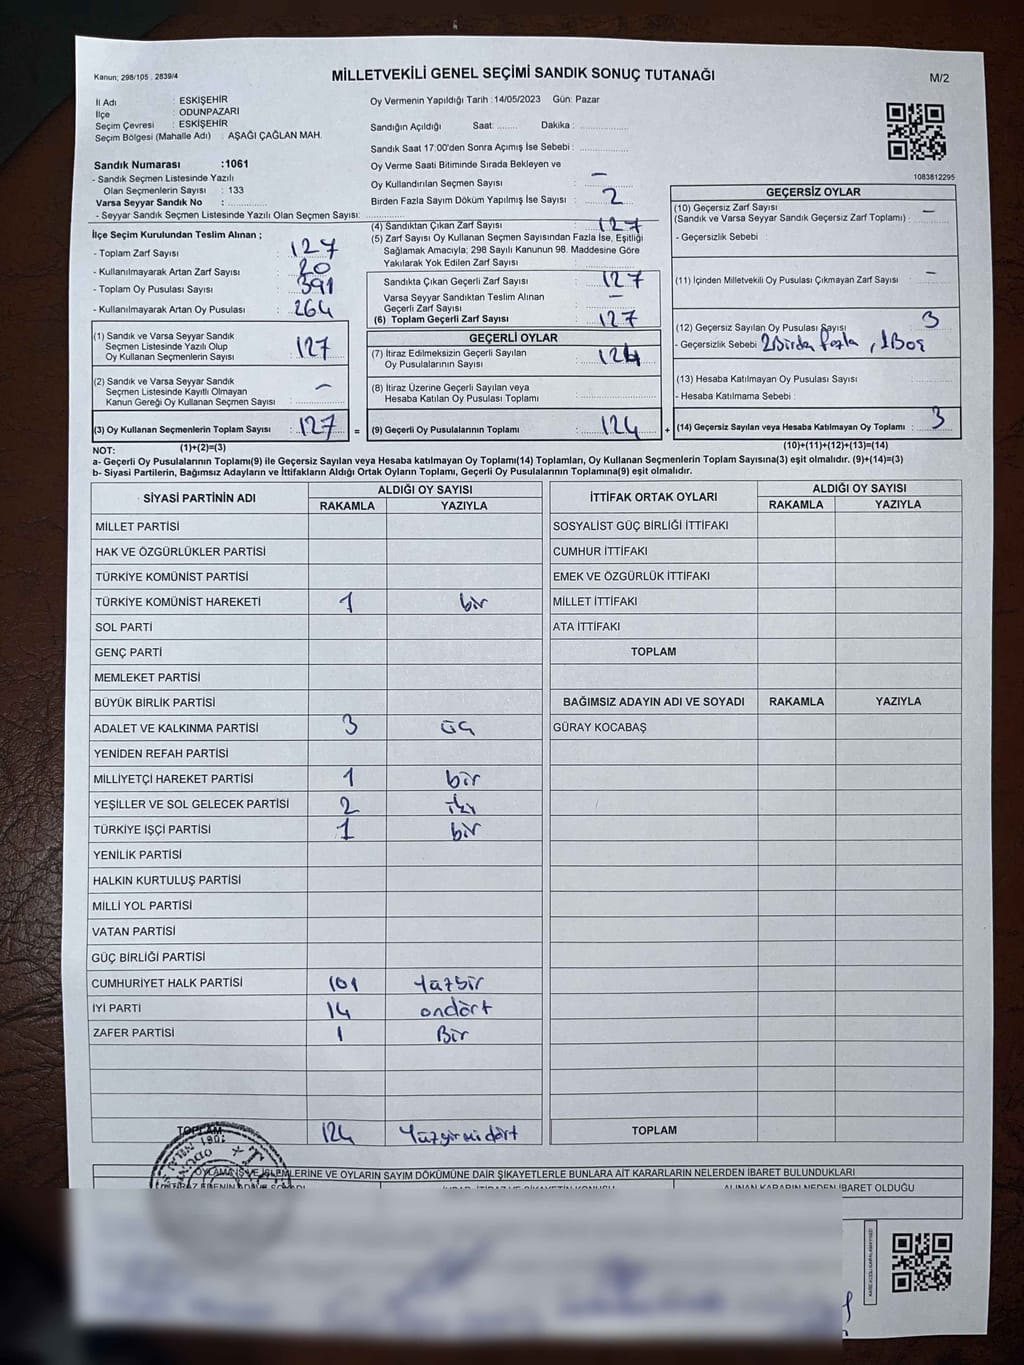 Kanun; 298/105 . 2839/4
MİLLETVEKİLİ GENEL SEÇİMİ SANDIK SONUÇ TUTANAĞI
M/2
İl Adı : ESKİŞEHİR
İlçe : ODUNPAZARI
Seçim Çevresi : ESKİŞEHİR
Seçim Bölgesi (Mahalle Adı) : AŞAĞI ÇAĞLAN MAH.
Oy Vermenin Yapıldığı Tarih :14/05/2023 Gün: Pazar
Sandığın Açıldığı Saat: ........ Dakika : ................
Sandık Saat 17:00'den Sonra Açımış İse Sebebi : ................
Sandık Numarası :1061
- Sandık Seçmen Listesinde Yazılı
Olan Seçmenlerin Sayısı : 133
Varsa Seyyar Sandık No :
- Seyyar Sandık Seçmen Listesinde Yazılı Olan Seçmen Sayısı:
Oy Verme Saati Bitiminde Sırada Bekleyen ve
Oy Kullandırılan Seçmen Sayısı : –
Birden Fazla Sayım Döküm Yapılmış İse Sayısı : 2
1083812295
İlçe Seçim Kurulundan Teslim Alınan ;
- Toplam Zarf Sayısı : 127
- Kullanılmayarak Artan Zarf Sayısı : 20
- Toplam Oy Pusulası Sayısı : 391
- Kullanılmayarak Artan Oy Pusulası : 264
(1) Sandık ve Varsa Seyyar Sandık
Seçmen Listesinde Yazılı Olup
Oy Kullanan Seçmenlerin Sayısı : 127
(2) Sandık ve Varsa Seyyar Sandık
Seçmen Listesinde Kayıtlı Olmayan
Kanun Gereği Oy Kullanan Seçmen Sayısı : –
(3) Oy Kullanan Seçmenlerin Toplam Sayısı : 127 =
(1)+(2)=(3)
(4) Sandıktan Çıkan Zarf Sayısı : 127
(5) Zarf Sayısı Oy Kullanan Seçmen Sayısından Fazla İse, Eşitliği
Sağlamak Amacıyla; 298 Sayılı Kanunun 98. Maddesine Göre
Yakılarak Yok Edilen Zarf Sayısı :
Sandıkta Çıkan Geçerli Zarf Sayısı : 127
Varsa Seyyar Sandıktan Teslim Alınan
Geçerli Zarf Sayısı : –
(6) Toplam Geçerli Zarf Sayısı : 127
GEÇERLİ OYLAR
(7) İtiraz Edilmeksizin Geçerli Sayılan
Oy Pusulalarının Sayısı : 124
(8) İtiraz Üzerine Geçerli Sayılan veya
Hesaba Katılan Oy Pusulası Toplamı :
(9) Geçerli Oy Pusulalarının Toplamı : 124 +
GEÇERSİZ OYLAR
(10) Geçersiz Zarf Sayısı
(Sandık ve Varsa Seyyar Sandık Geçersiz Zarf Toplamı) : –
- Geçersizlik Sebebi :
(11) İçinden Milletvekili Oy Pusulası Çıkmayan Zarf Sayısı : –
(12) Geçersiz Sayılan Oy Pusulası Sayısı : 3
- Geçersizlik Sebebi : 2Birden fazla , 1Boş
(13) Hesaba Katılmayan Oy Pusulası Sayısı :
- Hesaba Katılmama Sebebi :
(14) Geçersiz Sayılan veya Hesaba Katılmayan Oy Toplamı : 3
(10)+(11)+(12)+(13)=(14)
NOT:
a- Geçerli Oy Pusulalarının Toplamı(9) ile Geçersiz Sayılan veya Hesaba katılmayan Oy Toplamı(14) Toplamları, Oy Kullanan Seçmenlerin Toplam Sayısına(3) eşit olmalıdır. (9)+(14)=(3)
b- Siyasi Partilerin, Bağımsız Adayların ve İttifakların Aldığı Ortak Oyların Toplamı, Geçerli Oy Pusulalarının Toplamına(9) eşit olmalıdır.
SİYASİ PARTİNİN ADI ALDIĞI OY SAYISI
RAKAMLA YAZIYLA
MİLLET PARTİSİ
HAK VE ÖZGÜRLÜKLER PARTİSİ
TÜRKİYE KOMÜNİST PARTİSİ
TÜRKİYE KOMÜNİST HAREKETİ 1 bir
SOL PARTİ
GENÇ PARTİ
MEMLEKET PARTİSİ
BÜYÜK BİRLİK PARTİSİ
ADALET VE KALKINMA PARTİSİ 3 üç
YENİDEN REFAH PARTİSİ
MİLLİYETÇİ HAREKET PARTİSİ 1 bir
YEŞİLLER VE SOL GELECEK PARTİSİ 2 iki
TÜRKİYE İŞÇİ PARTİSİ 1 bir
YENİLİK PARTİSİ
HALKIN KURTULUŞ PARTİSİ
MİLLİ YOL PARTİSİ
VATAN PARTİSİ
GÜÇ BİRLİĞİ PARTİSİ
CUMHURİYET HALK PARTİSİ 101 Yüzbir
İYİ PARTİ 14 ondört
ZAFER PARTİSİ 1 Bir
TOPLAM 124 Yüzyirmidört
İTTİFAK ORTAK OYLARI ALDIĞI OY SAYISI
RAKAMLA YAZIYLA
SOSYALİST GÜÇ BİRLİĞİ İTTİFAKI
CUMHUR İTTİFAKI
EMEK VE ÖZGÜRLÜK İTTİFAKI
MİLLET İTTİFAKI
ATA İTTİFAKI
TOPLAM
BAĞIMSIZ ADAYIN ADI VE SOYADI RAKAMLA YAZIYLA
GÜRAY KOCABAŞ
TOPLAM
OYLAMA İŞ VE İŞLEMLERİNE VE OYLARIN SAYIM DÖKÜMÜNE DAİR ŞİKAYETLERLE BUNLARA AİT KARARLARIN NELERDEN İBARET BULUNDUKLARI
ALINAN KARARIN NEDEN İBARET OLDUĞU